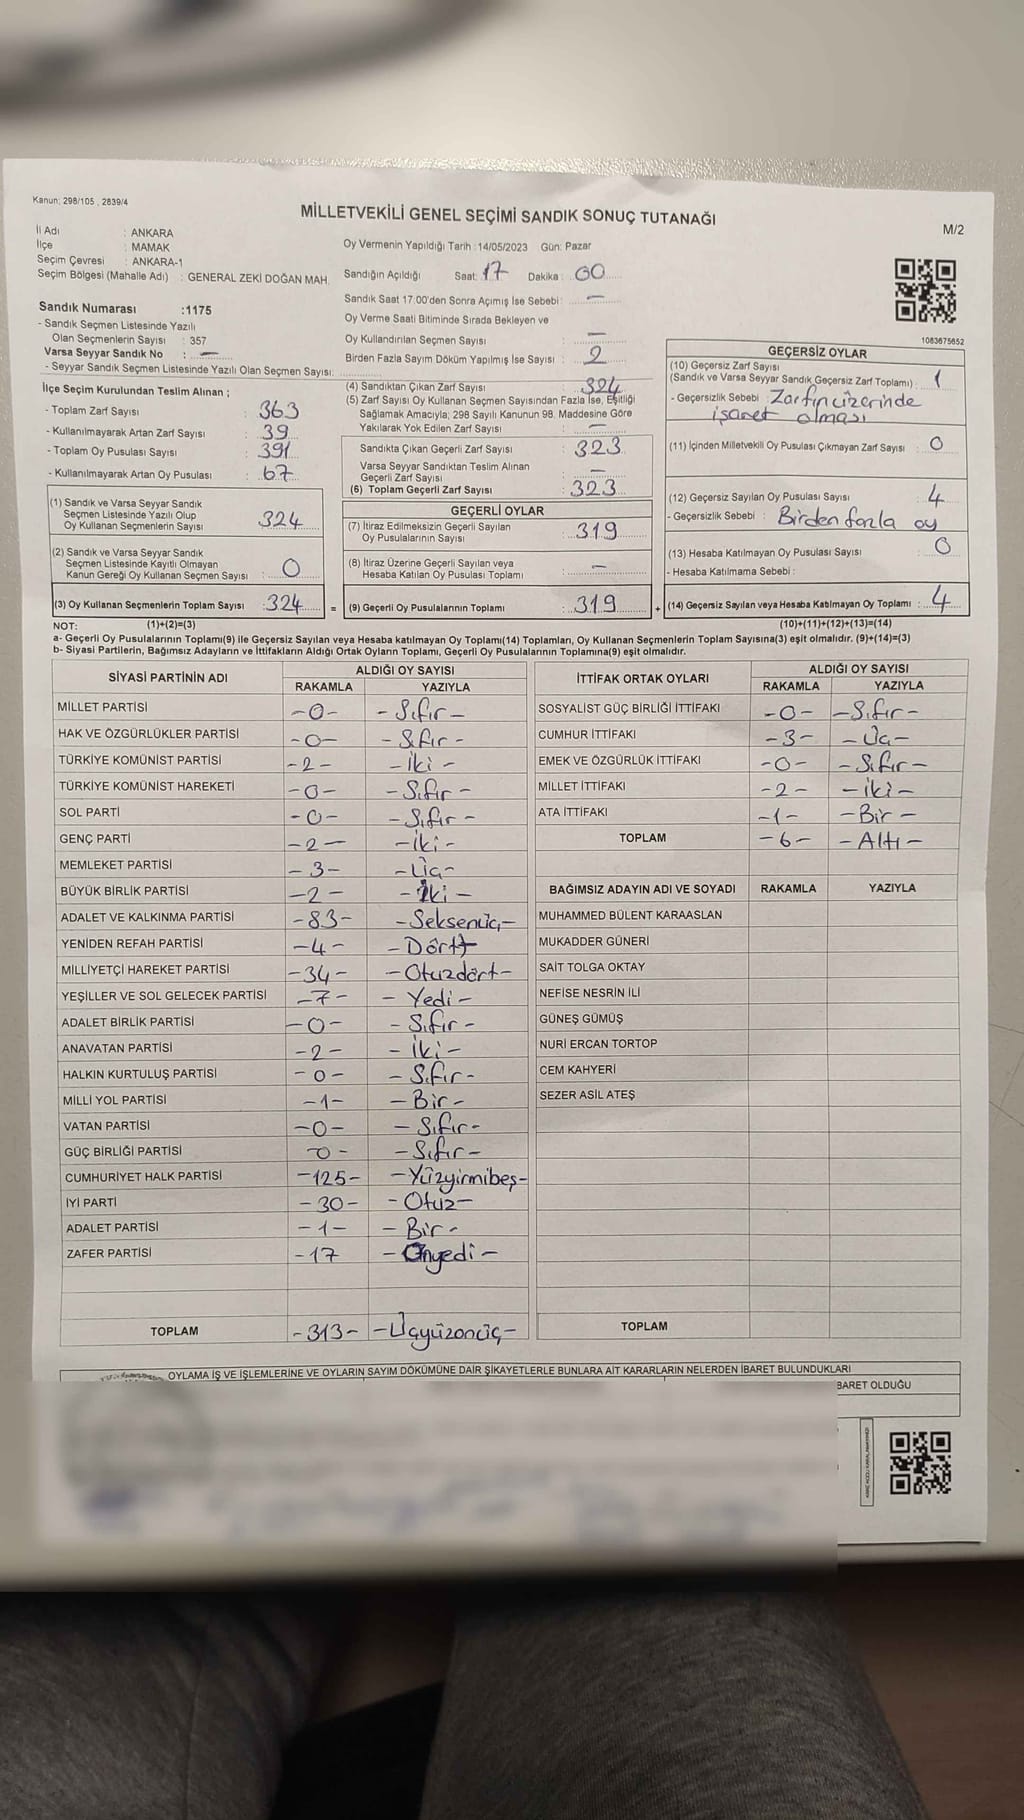 Kanun; 298/105 , 2839/4
MİLLETVEKİLİ GENEL SEÇİMİ SANDIK SONUÇ TUTANAĞI
M/2
İl Adı : ANKARA
İlçe : MAMAK
Seçim Çevresi : ANKARA-1
Seçim Bölgesi (Mahalle Adı) : GENERAL ZEKİ DOĞAN MAH.
Sandık Numarası :1175
- Sandık Seçmen Listesinde Yazılı
Olan Seçmenlerin Sayısı : 357
Varsa Seyyar Sandık No : —
- Seyyar Sandık Seçmen Listesinde Yazılı Olan Seçmen Sayısı:
Oy Vermenin Yapıldığı Tarih :14/05/2023 Gün: Pazar
Sandığın Açıldığı Saat: 17 Dakika : 00
Sandık Saat 17:00'den Sonra Açımış İse Sebebi : —
Oy Verme Saati Bitiminde Sırada Bekleyen ve
Oy Kullandırılan Seçmen Sayısı : —
Birden Fazla Sayım Döküm Yapılmış İse Sayısı : 2
1083675652
İlçe Seçim Kurulundan Teslim Alınan ;
- Toplam Zarf Sayısı : 363
- Kullanılmayarak Artan Zarf Sayısı : 39
- Toplam Oy Pusulası Sayısı : 391
- Kullanılmayarak Artan Oy Pusulası : 67
(1) Sandık ve Varsa Seyyar Sandık
Seçmen Listesinde Yazılı Olup
Oy Kullanan Seçmenlerin Sayısı : 324
(2) Sandık ve Varsa Seyyar Sandık
Seçmen Listesinde Kayıtlı Olmayan
Kanun Gereği Oy Kullanan Seçmen Sayısı : 0
(3) Oy Kullanan Seçmenlerin Toplam Sayısı : 324 =
(4) Sandıktan Çıkan Zarf Sayısı : 324
(5) Zarf Sayısı Oy Kullanan Seçmen Sayısından Fazla İse, Eşitliği
Sağlamak Amacıyla; 298 Sayılı Kanunun 98. Maddesine Göre
Yakılarak Yok Edilen Zarf Sayısı : —
Sandıkta Çıkan Geçerli Zarf Sayısı : 323
Varsa Seyyar Sandıktan Teslim Alınan
Geçerli Zarf Sayısı : —
(6) Toplam Geçerli Zarf Sayısı : 323
GEÇERLİ OYLAR
(7) İtiraz Edilmeksizin Geçerli Sayılan
Oy Pusulalarının Sayısı : 319
(8) İtiraz Üzerine Geçerli Sayılan veya
Hesaba Katılan Oy Pusulası Toplamı : —
(9) Geçerli Oy Pusulalarının Toplamı : 319 +
GEÇERSİZ OYLAR
(10) Geçersiz Zarf Sayısı
(Sandık ve Varsa Seyyar Sandık Geçersiz Zarf Toplamı) : 1
- Geçersizlik Sebebi : Zarfın üzerinde
işaret olması
(11) İçinden Milletvekili Oy Pusulası Çıkmayan Zarf Sayısı : 0
(12) Geçersiz Sayılan Oy Pusulası Sayısı : 4
- Geçersizlik Sebebi : Birden fazla oy
(13) Hesaba Katılmayan Oy Pusulası Sayısı : 0
- Hesaba Katılmama Sebebi :
(14) Geçersiz Sayılan veya Hesaba Katılmayan Oy Toplamı : 4
NOT: (1)+(2)=(3) (10)+(11)+(12)+(13)=(14)
a- Geçerli Oy Pusulalarının Toplamı(9) ile Geçersiz Sayılan veya Hesaba katılmayan Oy Toplamı(14) Toplamları, Oy Kullanan Seçmenlerin Toplam Sayısına(3) eşit olmalıdır. (9)+(14)=(3)
b- Siyasi Partilerin, Bağımsız Adayların ve İttifakların Aldığı Ortak Oyların Toplamı, Geçerli Oy Pusulalarının Toplamına(9) eşit olmalıdır.
SİYASİ PARTİNİN ADI ALDIĞI OY SAYISI
RAKAMLA YAZIYLA
MİLLET PARTİSİ -0- -Sıfır-
HAK VE ÖZGÜRLÜKLER PARTİSİ -0- -Sıfır-
TÜRKİYE KOMÜNİST PARTİSİ -2- -İki-
TÜRKİYE KOMÜNİST HAREKETİ -0- -Sıfır-
SOL PARTİ -0- -Sıfır-
GENÇ PARTİ -2- -İki-
MEMLEKET PARTİSİ -3- -Üç-
BÜYÜK BİRLİK PARTİSİ -2- -İki-
ADALET VE KALKINMA PARTİSİ -83- -Seksenüç-
YENİDEN REFAH PARTİSİ -4- -Dört-
MİLLİYETÇİ HAREKET PARTİSİ -34- -Otuzdört-
YEŞİLLER VE SOL GELECEK PARTİSİ -7- -Yedi-
ADALET BİRLİK PARTİSİ -0- -Sıfır-
ANAVATAN PARTİSİ -2- -İki-
HALKIN KURTULUŞ PARTİSİ -0- -Sıfır-
MİLLİ YOL PARTİSİ -1- -Bir-
VATAN PARTİSİ -0- -Sıfır-
GÜÇ BİRLİĞİ PARTİSİ -0- -Sıfır-
CUMHURİYET HALK PARTİSİ -125- -Yüzyirmibeş-
İYİ PARTİ -30- -Otuz-
ADALET PARTİSİ -1- -Bir-
ZAFER PARTİSİ -17 -Onyedi-
TOPLAM -313- -Üçyüzonüç-
İTTİFAK ORTAK OYLARI ALDIĞI OY SAYISI
RAKAMLA YAZIYLA
SOSYALİST GÜÇ BİRLİĞİ İTTİFAKI -0- -Sıfır-
CUMHUR İTTİFAKI -3- -Üç-
EMEK VE ÖZGÜRLÜK İTTİFAKI -0- -Sıfır-
MİLLET İTTİFAKI -2- -İki-
ATA İTTİFAKI -1- -Bir-
TOPLAM -6- -Altı-
BAĞIMSIZ ADAYIN ADI VE SOYADI RAKAMLA YAZIYLA
MUHAMMED BÜLENT KARAASLAN
MUKADDER GÜNERİ
SAİT TOLGA OKTAY
NEFİSE NESRİN İLİ
GÜNEŞ GÜMÜŞ
NURİ ERCAN TORTOP
CEM KAHYERİ
SEZER ASİL ATEŞ
TOPLAM
OYLAMA İŞ VE İŞLEMLERİNE VE OYLARIN SAYIM DÖKÜMÜNE DAİR ŞİKAYETLERLE BUNLARA AİT KARARLARIN NELERDEN İBARET BULUNDUKLARI
BARET OLDUĞU